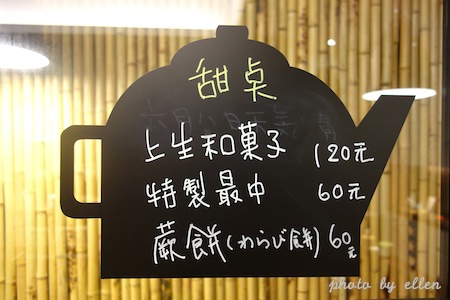 甜点
上生和菓子 120元
特製最中 60元
蕨餅(わらび餅) 60元
photo by ellen